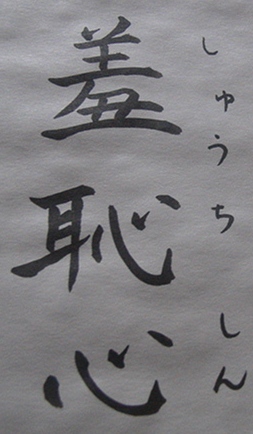 羞恥心
しゅうちしん